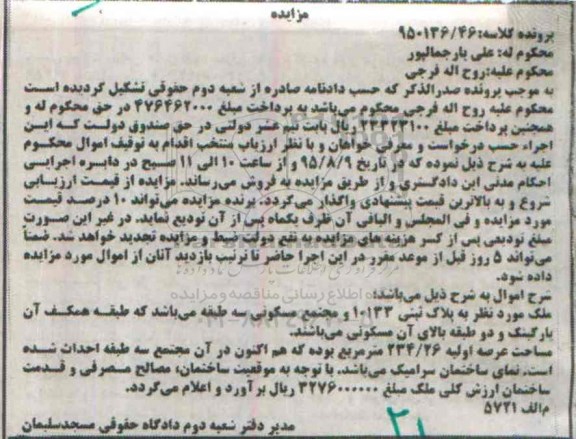 مزایده
پرونده کلاسه: ۹۵۰۱۳۶/۴۶
محکوم له: علی یارجمالپور
محکوم علیه: روح اله فرجی
به موجب پرونده صدرالذکر که حسب دادنامه صادره از شعبه دوم حقوقی تشکیل گردیده است
محکوم علیه روح اله فرجی محکوم می‌باشد به پرداخت مبلغ ۴۷۶۴۶۲۰۰۰ در حق محکوم له و
همچنین پرداخت مبلغ ریال بابت نیم عشر دولتی در حق صندوق دولت که این
اجراء حسب درخواست و معرفی خواهان و با نظر ارزیاب منتخب اقدام به توقیف اموال محکوم
علیه به شرح ذیل نموده که در تاریخ ۹۵/۸/۹ و از ساعت ۱۰ الی ۱۱ صبح در دایره اجرایی
احکام مدنی این دادگستری و از طریق مزایده به فروش می‌رساند. مزایده از قیمت ارزیابی
شروع و به بالاترین قیمت پیشنهادی واگذار می‌گردد. برنده مزایده می‌تواند ۱۰ درصد قیمت
مورد مزایده و فی المجلس و الباقی آن ظرف یکماه پس از آن تودیع نماید. در غیر این صورت
مبلغ تودیعی پس از کسر هزینه های مزایده به نفع دولت ضبط و مزایده تجدید خواهد شد. ضمناً
می‌تواند ۵ روز قبل از موعد مقرر در این اجرا حاضر تا ترتیب بازدید آنان از اموال مورد مزایده
داده شود.
شرح اموال به شرح ذیل می‌باشد:
ملک مورد نظر به پلاک ثبتی ۱۰۱۳۳ و مجتمع مسکونی سه طبقه می‌باشد که طبقه همکف آن
پارکینگ و دو طبقه بالای آن مسکونی می‌باشند.
مساحت عرصه اولیه ۲۳۴/۲۶ مترمربع بوده که هم اکنون در آن مجتمع سه طبقه احداث شده
است. نمای ساختمان سرامیک می‌باشد. با توجه به موقعیت ساختمان، مصالح مصرفی و قدمت
ساختمان ارزش کلی ملک مبلغ ۳۲۷۶۰۰۰۰۰۰ ریال برآورد و اعلام می‌گردد.
م/الف ۵۷۲۱
مدیر دفتر شعبه دوم دادگاه حقوقی مسجدسلیمان